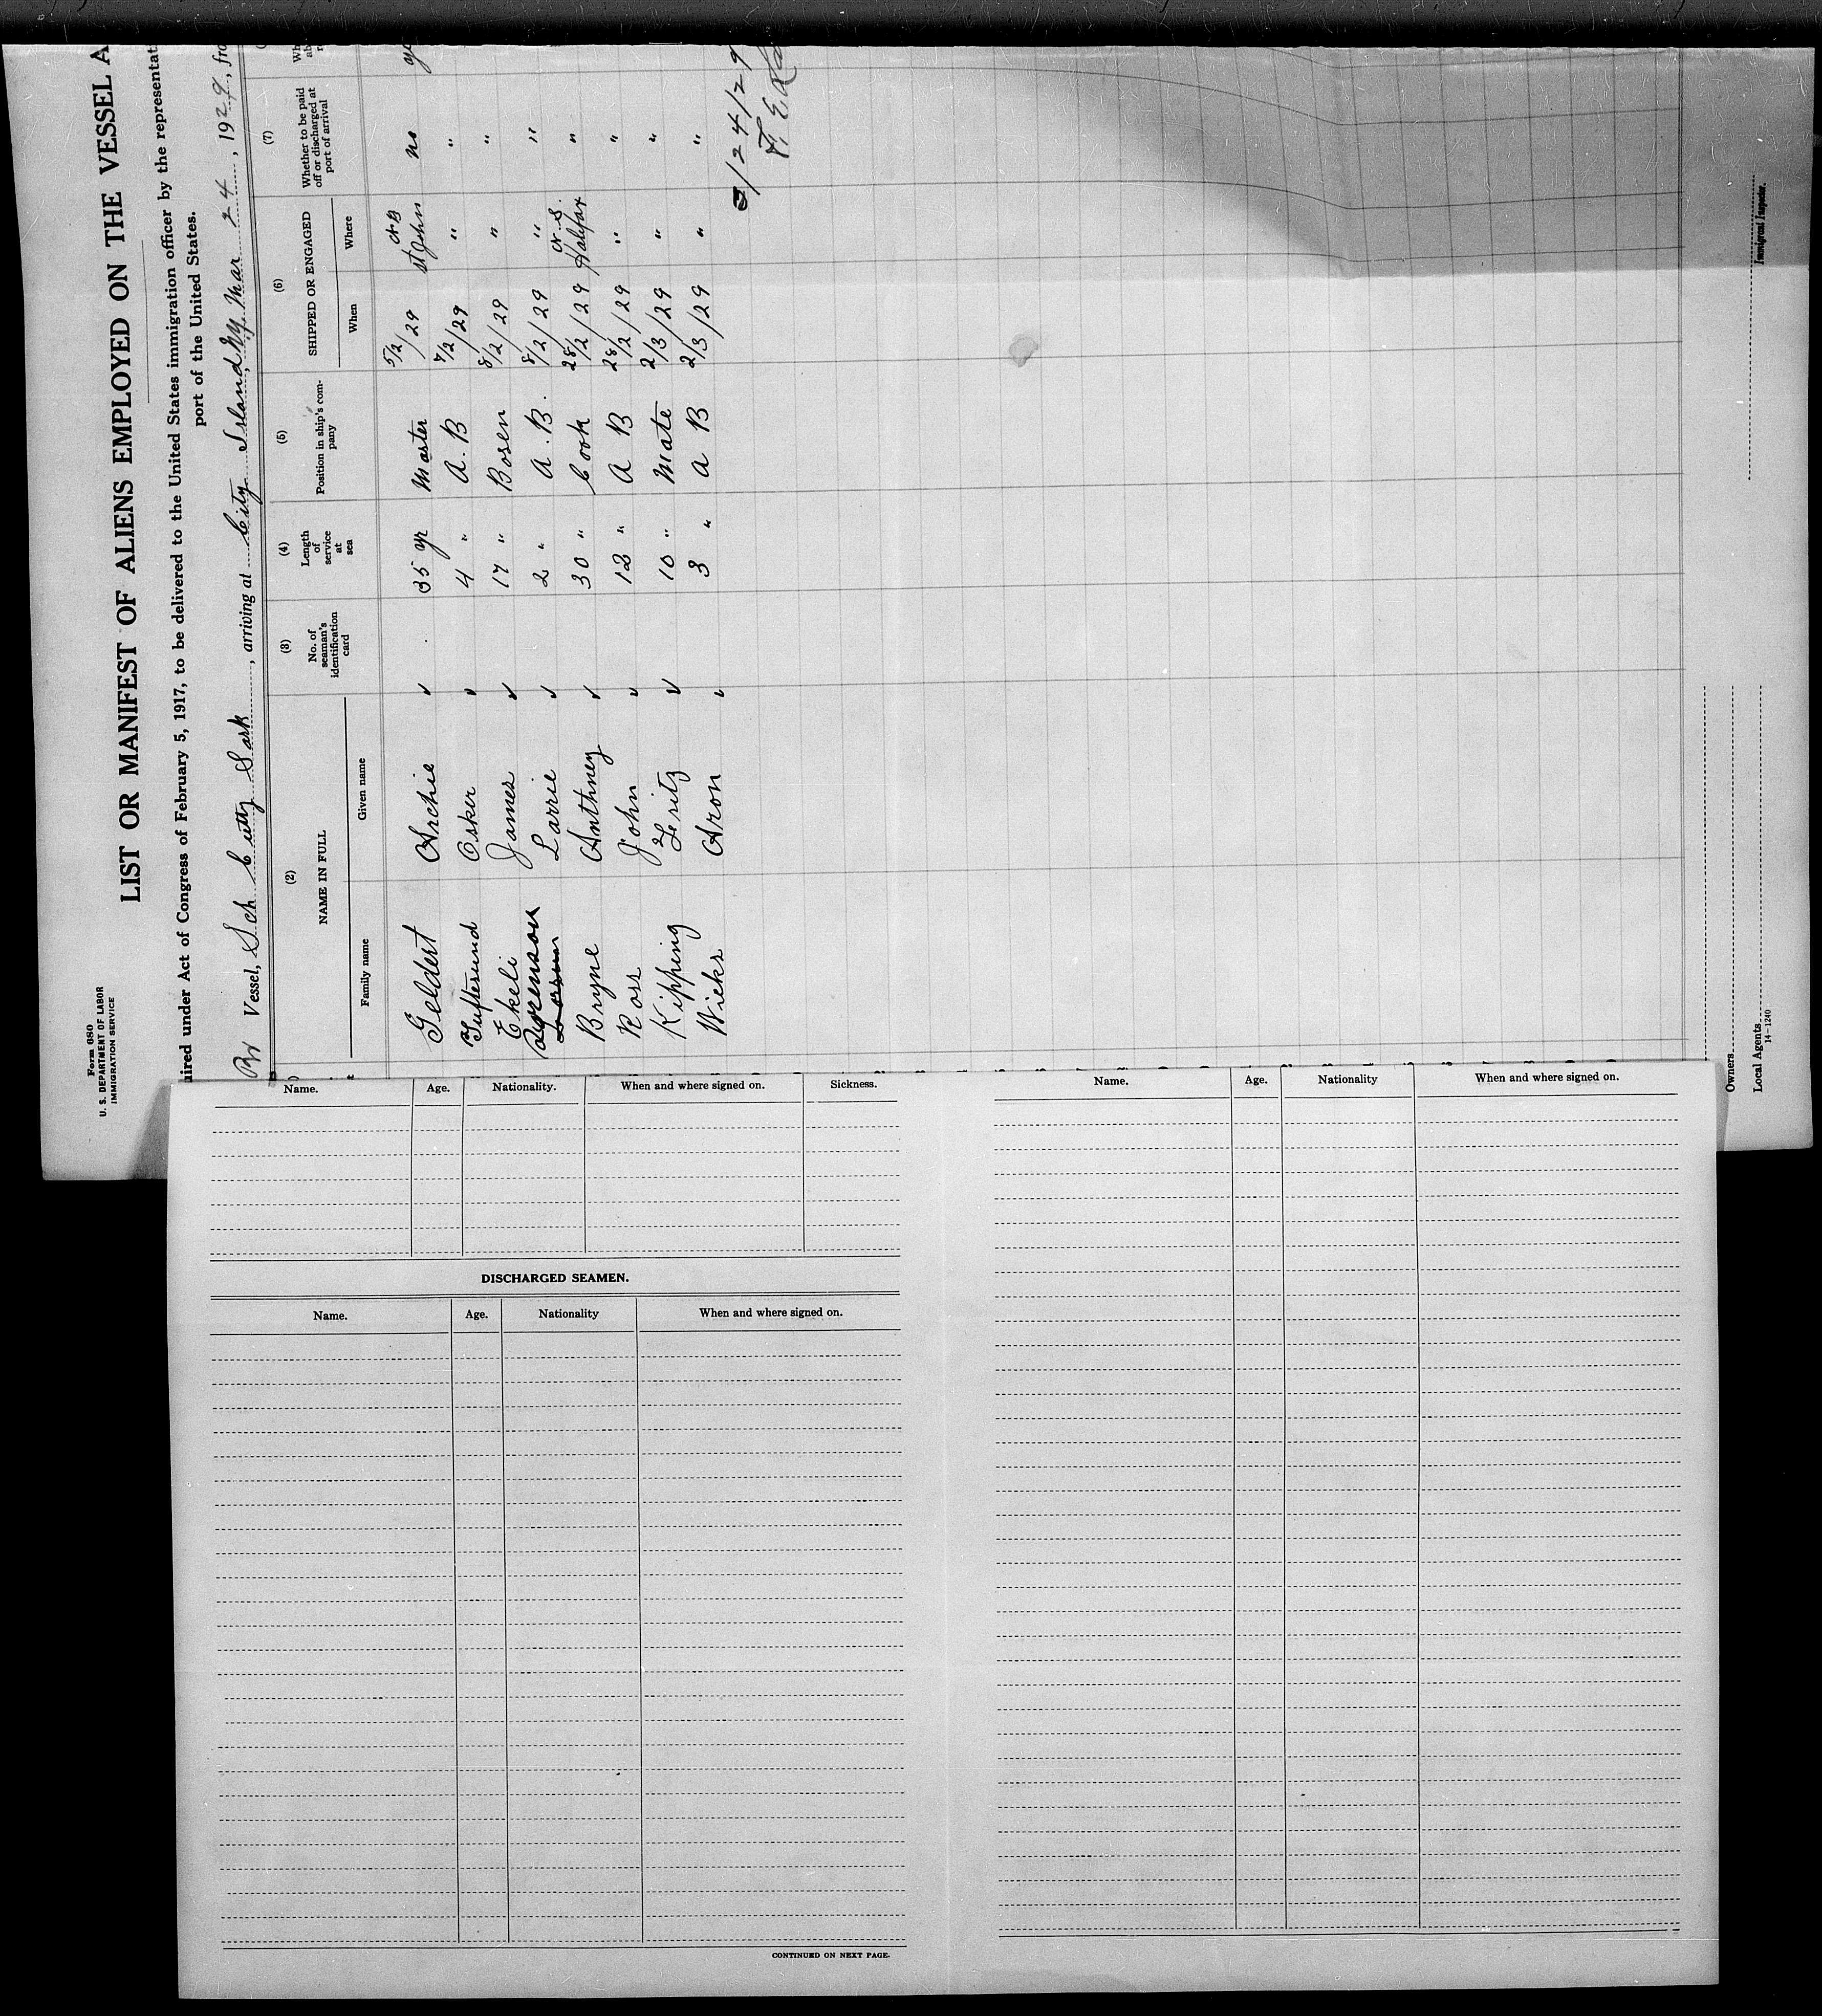 Form 680
U. S. DEPARTMENT OF LABOR
IMMIGRATION SERVICE
LIST OR MANIFEST OF ALIENS EMPLOYED ON THE VESSEL A
uired under Act of Congress of February 5, 1917, to be delivered to the United States immigration officer by the representat
port of the United States.
Br Vessel, Sch Cutty Sark, arriving at City Island N.Y. Mar 24, 1929, fro
(2) (3) (4) (5) (6) (7)
NAME IN FULL No. of seaman's identification card Length of service at sea Position in ship's company SHIPPED OR ENGAGED Whether to be paid off or discharged at port of arrival
Family name Given name When Where
Geldert Archie ✓ 35 yr Master 5/2/29 St John N B no
Osker ✓ 4 " A. B 7/2/29 " "
Ekeli James ✓ 17 " Bosen 8/2/29 " "
Larrie ✓ 2 " A. B. 8/2/29 " "
Bryne Anthney ✓ 30 " Cook 28/2/29 Halifax N. S. "
Ross John ✓ 12 " A B 28/2/29 " "
Kipping Fritz ✓ 10 " Mate 2/3/29 " "
Wicks Aron ✓ 3 " A B 2/3/29 " "
3/24/29
Immigrant Inspector.
Owners
Local Agents
14—1240
Name. Age. Nationality. When and where signed on. Sickness.
DISCHARGED SEAMEN.
Name. Age. Nationality When and where signed on.
CONTINUED ON NEXT PAGE.
Name. Age. Nationality When and where signed on.